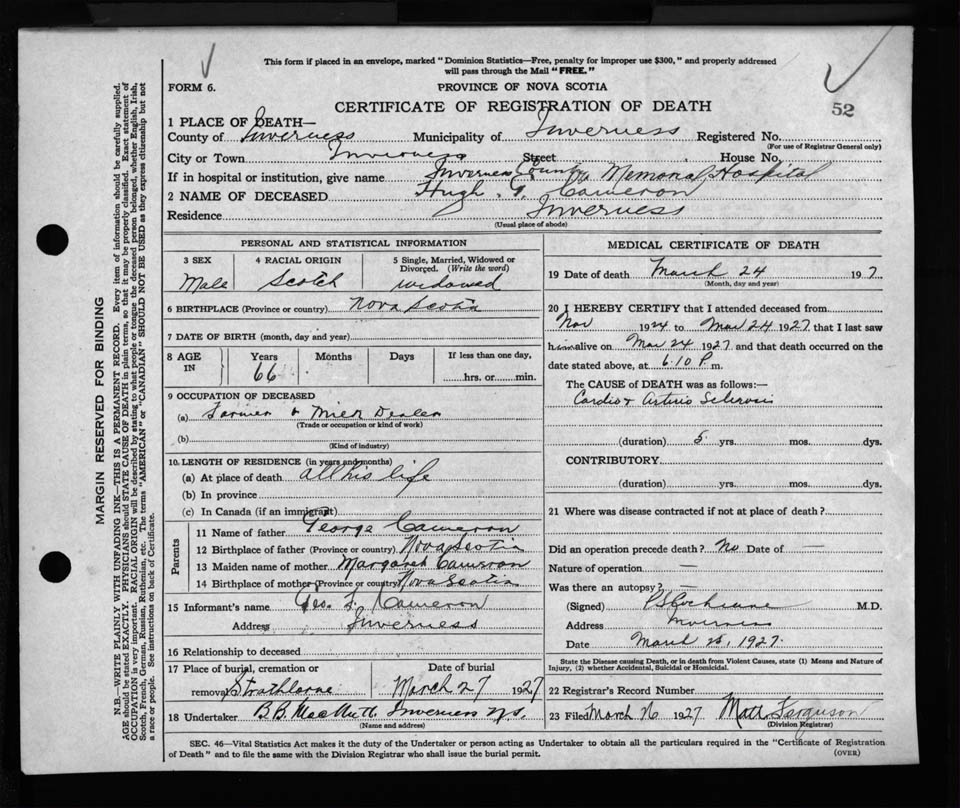 This form if placed in an envelope, marked "Dominion Statistics—Free, penalty for improper use $300," and properly addressed
will pass through the Mail "FREE."
FORM 6.
PROVINCE OF NOVA SCOTIA
52
CERTIFICATE OF REGISTRATION OF DEATH
1 PLACE OF DEATH—
County of Inverness Municipality of Inverness Registered No.
(For use of Registrar General only)
City or Town Inverness Street House No.
If in hospital or institution, give name Inverness County Memorial Hospital
2 NAME OF DECEASED Hugh G. Cameron
Residence Inverness
(Usual place of abode)
PERSONAL AND STATISTICAL INFORMATION
3 SEX 4 RACIAL ORIGIN 5 Single, Married, Widowed or
Divorced. (Write the word)
Male Scotch widowed
6 BIRTHPLACE (Province or country) Nova Scotia
7 DATE OF BIRTH (month, day and year)
8 AGE IN Years Months Days If less than one day,
66 hrs. or min.
9 OCCUPATION OF DECEASED
(a) Farmer & Milk Dealer
(Trade or occupation or kind of work)
(b)
(Kind of industry)
10 LENGTH OF RESIDENCE (in years and months)
(a) At place of death all his life
(b) In province
(c) In Canada (if an immigrant)
Parents
11 Name of father George Cameron
12 Birthplace of father (Province or country) Nova Scotia
13 Maiden name of mother Margaret Cameron
14 Birthplace of mother (Province or country) Nova Scotia
15 Informant's name Geo. L. Cameron
Address Inverness
16 Relationship to deceased
17 Place of burial, cremation or Date of burial
removal Strathlorne March 27 1927
18 Undertaker B.B. Inverness N.S.
(Name and address)
MEDICAL CERTIFICATE OF DEATH
19 Date of death March 24 192 7
(Month, day and year)
20 I HEREBY CERTIFY that I attended deceased from
Nov 1924 to Mar 24 1927 that I last saw
him alive on Mar 24 1927 and that death occurred on the
date stated above, at 6.10 P. m.
The CAUSE of DEATH was as follows:—
Cardio & Arterio Sclerosis
(duration) 5 yrs. mos. dys.
CONTRIBUTORY
(duration) yrs. mos. dys.
21 Where was disease contracted if not at place of death?
Did an operation precede death? No Date of —
Nature of operation —
Was there an autopsy? —
(Signed) Cochrane M.D.
Address Inverness
Date March 1927.
State the Disease causing Death, or in death from Violent Causes, state (1) Means and Nature of
Injury, (2) whether Accidental, Suicidal or Homicidal.
22 Registrar's Record Number
23 Filed March 26 1927 Matt Ferguson
(Division Registrar)
SEC. 46—Vital Statistics Act makes it the duty of the Undertaker or person acting as Undertaker to obtain all the particulars required in the "Certificate of Registration
of Death" and to file the same with the Division Registrar who shall issue the burial permit.
(OVER)
MARGIN RESERVED FOR BINDING
N.B.—WRITE PLAINLY WITH UNFADING INK—THIS IS A PERMANENT RECORD. Every item of information should be carefully supplied.
AGE should be stated EXACTLY. PHYSICIANS should STATE CAUSE OF DEATH in plain terms, so that it may be properly classified. Exact statement of
OCCUPATION is very important. RACIAL ORIGIN will be described by stating to what people or tongue the deceased person belonged, whether English, Irish,
Scotch, French, German, Russian, Ruthenian, etc. The terms "AMERICAN" or "CANADIAN" SHOULD NOT BE USED as they express citizenship but not
a race or people. See instructions on back of Certificate.